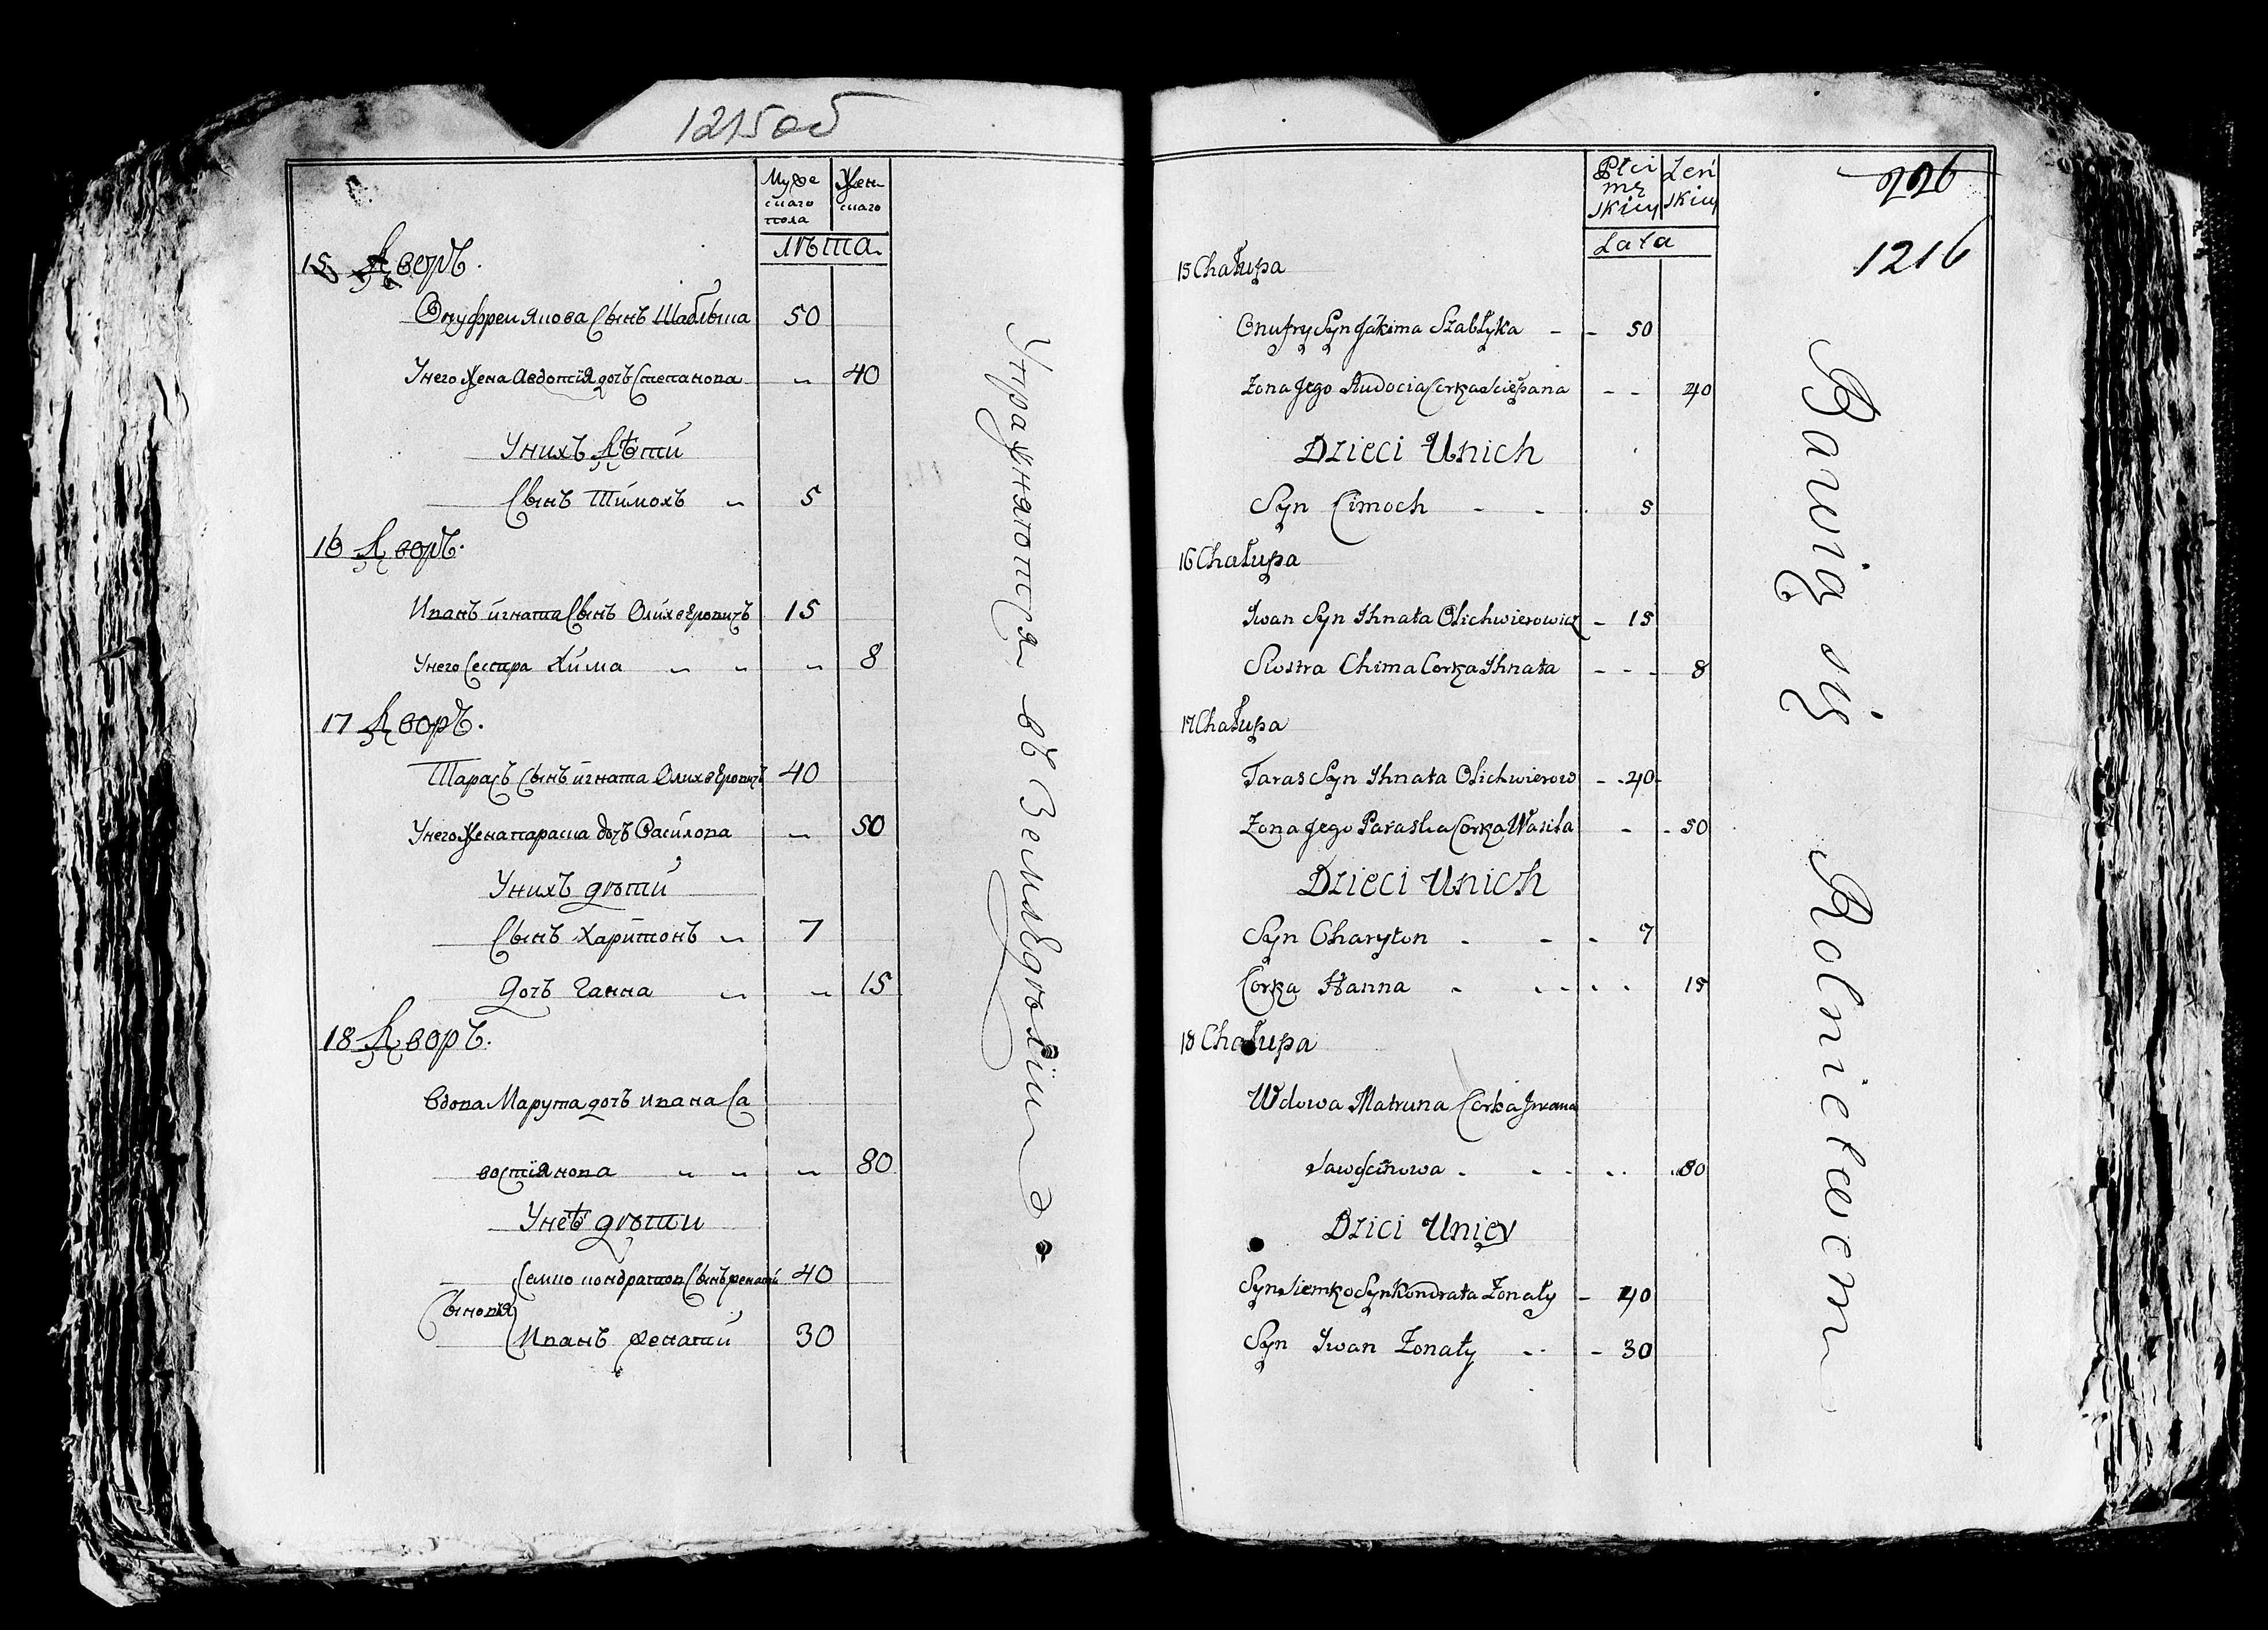 1215об
Муже
скаго
пола
Жен
скаго
лѣта
15 Дворъ.
Онуфреи Якова Сынъ Шаблыка 50
Унего Жена Авдотія дочъ Степанова 40
Унихъ Дѣти
Сынъ Тимохъ 5
16 Дворъ.
Иванъ игната Сынъ Олихверовичъ 15
Унего Сестра Хима 8
17 Дворъ.
Тарасъ Сынъ игната Олихверовичъ 40
Унего Жена параска дочъ Василова 50
Унихъ дѣти
Сынъ Харитонъ 7
дочъ Ганна 15
18 Дворъ.
Вдова Марута дочъ ивана Са
востіянова 80
Унеѣ дѣти
Семко кондратов Сынъ женатй 40
Сыновя
Иванъ женатй 30
Упражняютця въ Земледѣліи
Płci
mę
skiey
Żeń
skiey
Lata
226
1216
15 Chałupa
Onufry Syn Jakima Szabłyka - - 50
Zona Jego Audocia Corka Sciepana - - 40
Dzieci Unich
Syn Cimoch - - 5
16 Chałupa
Iwan Syn Ihnata Olichwierowicz - 15
Siostra Chima Corka Ihnata - - - 8
17 Chałupa
Taras Syn Ihnata Olichwierow - - 40
Zona Jego Paraska Corka Wasila - - 50
Dzieci Unich
Syn Charyton - - - 7
Corka Hanna - - - - - 15
18 Chałupa
Wdowa Matruna Corka Jwana
Sawoscinowa - - - - - 80
Dzici Uniey
Syn Siemko Syn Kondrata Zonaty - 40
Syn Iwan Zonaty - - - 30
Bawią się Rolnictwem